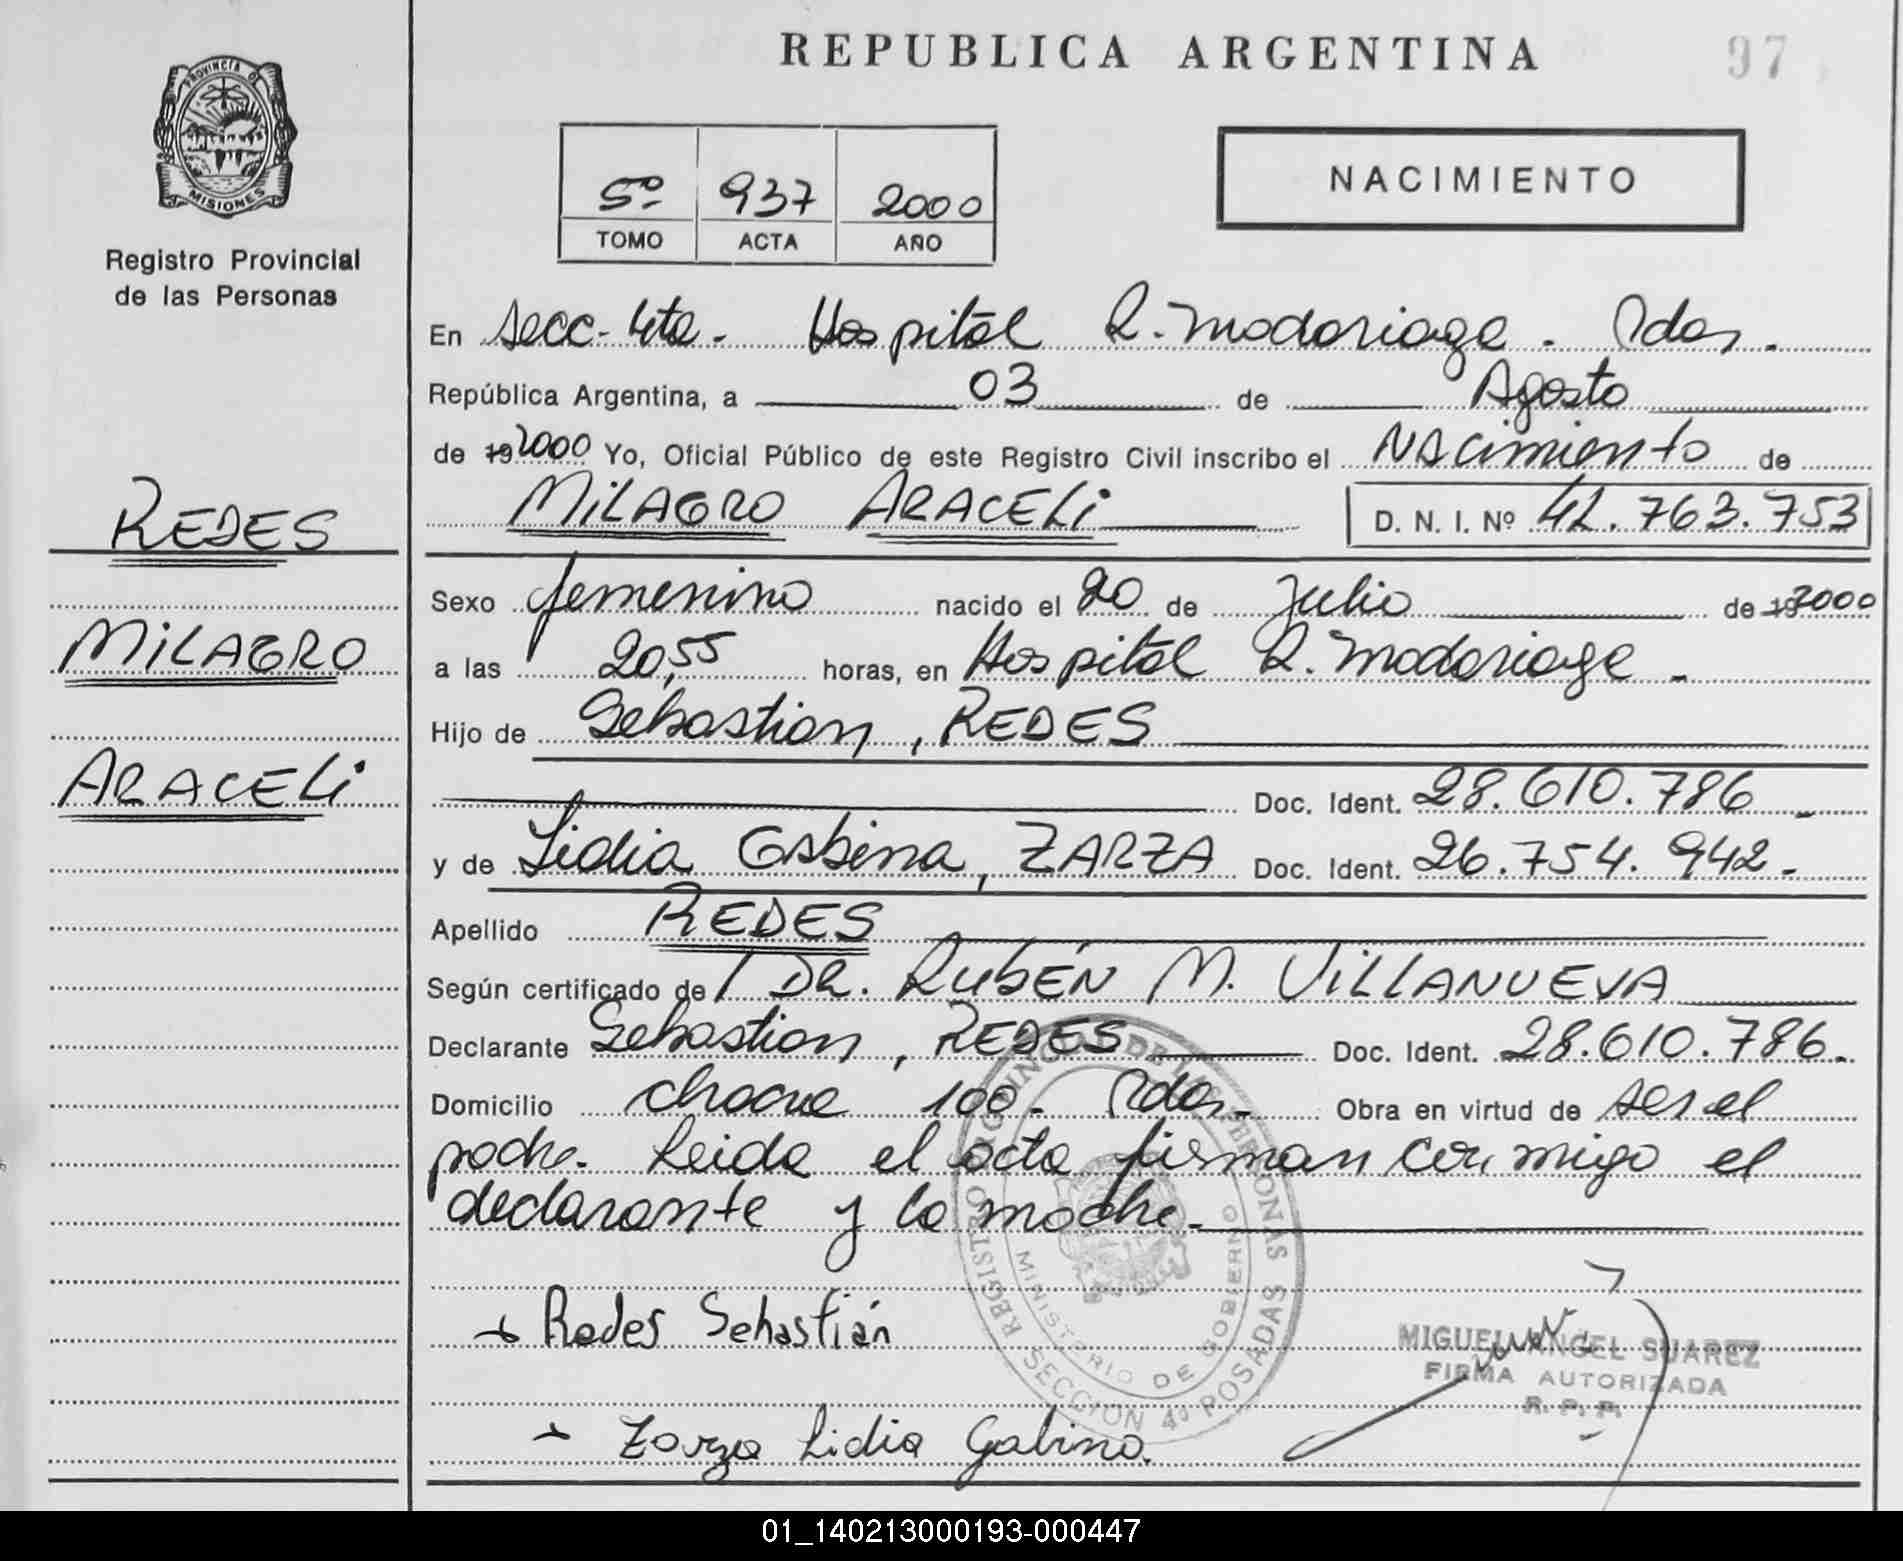 REPUBLICA ARGENTINA
97
PROVINCIA DE
MISIONES
Registro Provincial
de las Personas
5º 937 2000
TOMO ACTA AÑO
NACIMIENTO
En Secc. 4ta. Hospital R. Madariaga. Pdas.
República Argentina, a 03 de Agosto
de 19 2000 Yo, Oficial Público de este Registro Civil inscribo el Nacimiento de
MILAGRO ARACELi D. N. I. Nº 42.763.753
REDES
MILAGRO
ARACELi
Sexo femenino nacido el 20 de Julio de 19 2000
a las 20,55 horas, en Hospital R. Madariaga.
Hijo de Sebastian, REDES
Doc. Ident. 28.610.786
y de Lidia Gabina, ZARZA Doc. Ident. 26.754.942.-
Apellido REDES
Según certificado de / DR. RUBÉN M. VILLANUEVA
Declarante Sebastian, REDES Doc. Ident. 28.610.786.
Domicilio 100. Pdas. Obra en virtud de ser el
padre. Leida el acta firman conmigo el
declarante y la madre.
Redes Sebastián
Zarza Lidia Gabina.
REGISTRO PROVINCIAL DE LAS PERSONAS
MINISTERIO DE GOBIERNO
SECCION 4º POSADAS
MIGUEL ANGEL SUAREZ
FIRMA AUTORIZADA
R. P. P.
01_140213000193-000447